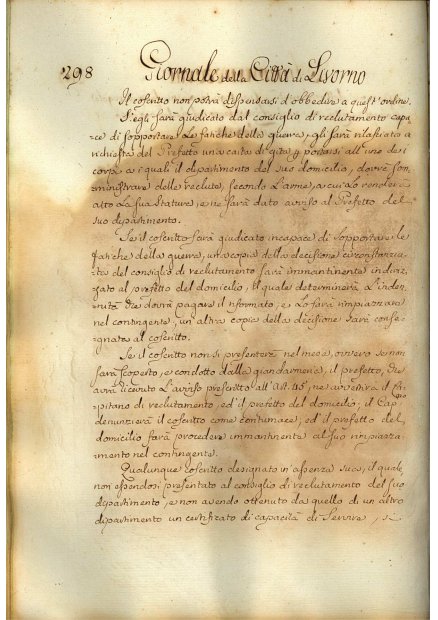 298 Giornale della Città di Livorno
Il coscritto non potrà dispensarsi d'obbedire a quest'ordine.
S'egli sarà giudicato dal consiglio di reclutamento capa-
ce di sopportare le fatiche della guerra, gli sarà rilasciata a
richiesta del Prefetto una carta di gita p portarsi all'uno dei
corpi a i quali il dipartimento del suo domicilio, dovrà som-
ministrare delle reclute, secondo l'arme, a cui lo renderà
atto la sua statura, e ne sarà dato avviso al Prefetto del
suo dipartimento.
Se il coscritto sarà giudicato incapace di sopportare le
fatiche della guerra, una copia della decisione circostanzia-
ta del consiglio di reclutamento sarà immantinente indiriz-
zata al prefetto del domicilio, il quale determinerà l'inden-
nità che dovrà pagare il riformato, e lo farà rimpiazzare
nel contingente, un altra copia della decisione sarà conse-
gnata al coscritto.
Se il coscritto non si presenterà nel mese, ovvero se non
sarà scoperto, e condotto dalla giandarmeria, il prefetto, che
avrà ricevuto l'avviso prescritto all'Art. 45, ne avvertirà il ca-
pitano di reclutamento, ed il prefetto del domicilio; il Cap.no
denunzierà il coscritto come contumace, ed il prefetto del
domicilio farà procedere immantinente al suo rimpiazza-
mento nel contingente.
Qualunque coscritto designato in assenza sua, il quale
non essendosi presentato al consiglio di reclutamento del suo
dipartimento, e non avendo ottenuto da quello di un altro
dipartimento un certificato di capacità di servire, s